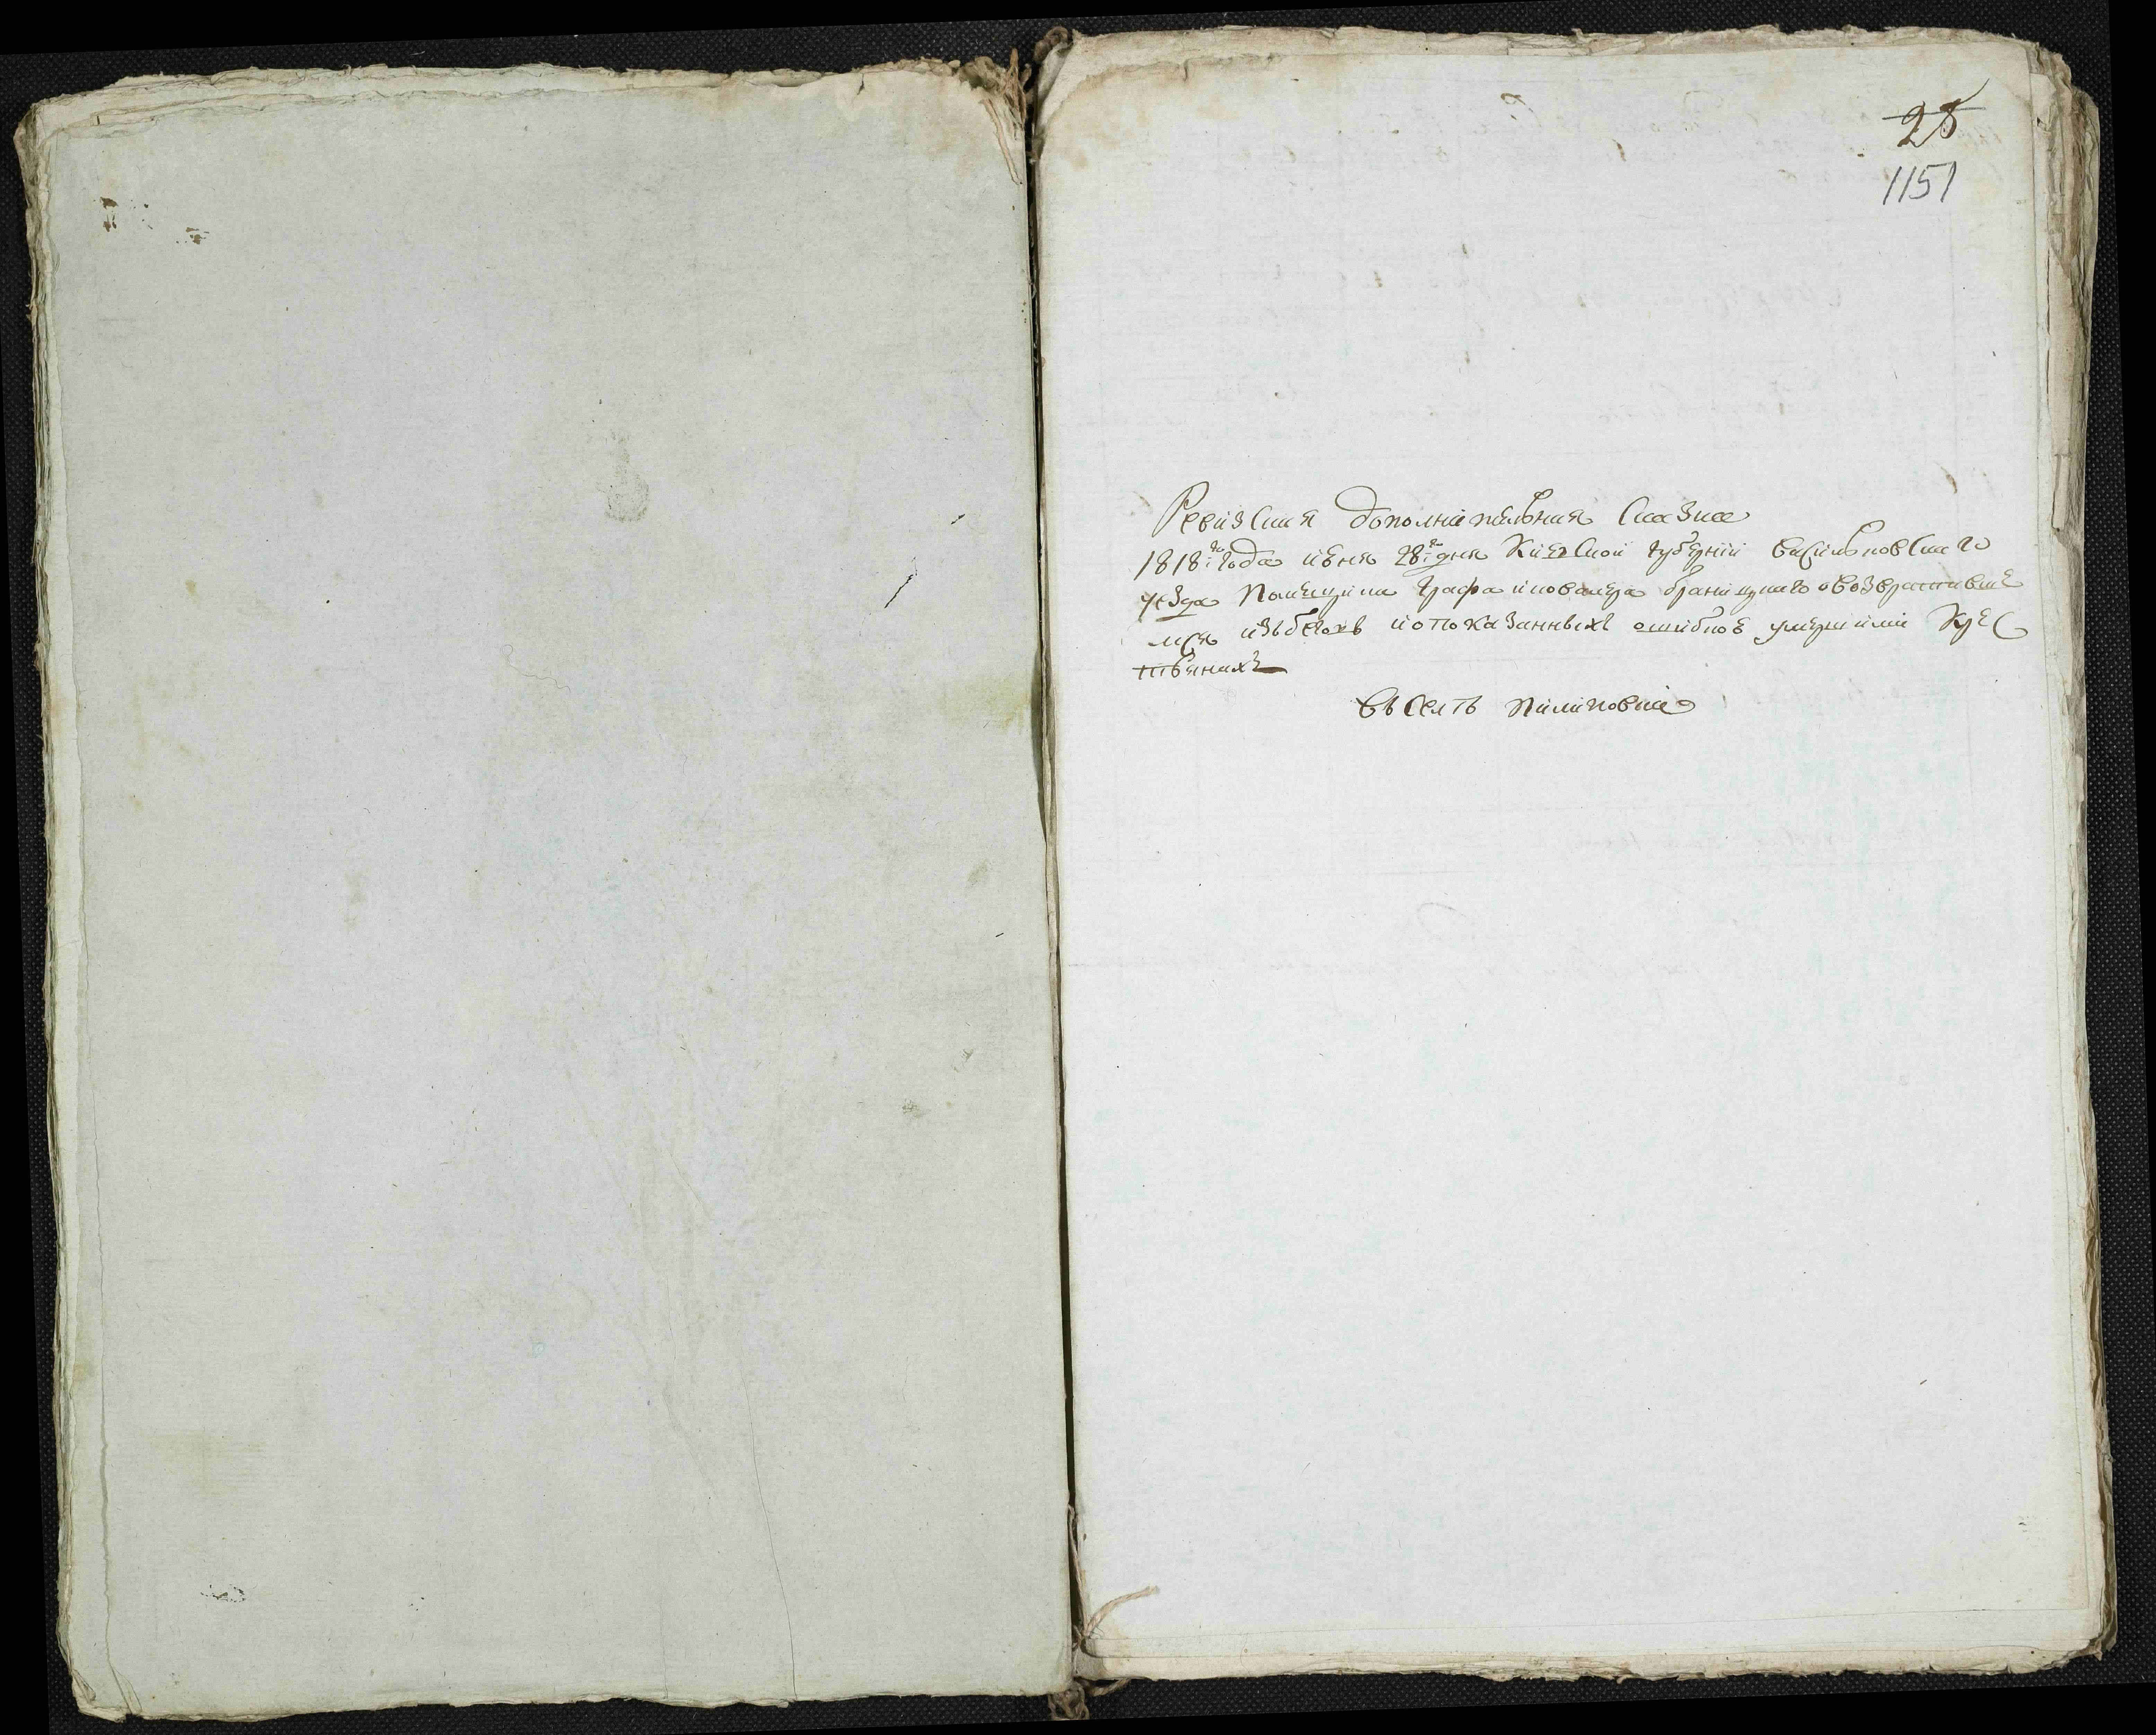 28
1151
Ревизская дополнительная Сказка
1818:го года июня 28:го дня Киевской губернии васильковскаго
уезда Помещика графа и кавалера браницкаго о возвративше
мся изъ бегохъ и о показанныхъ ошибкоѣ умершими Крес
тьянахъ
въ селѣ пилиповки